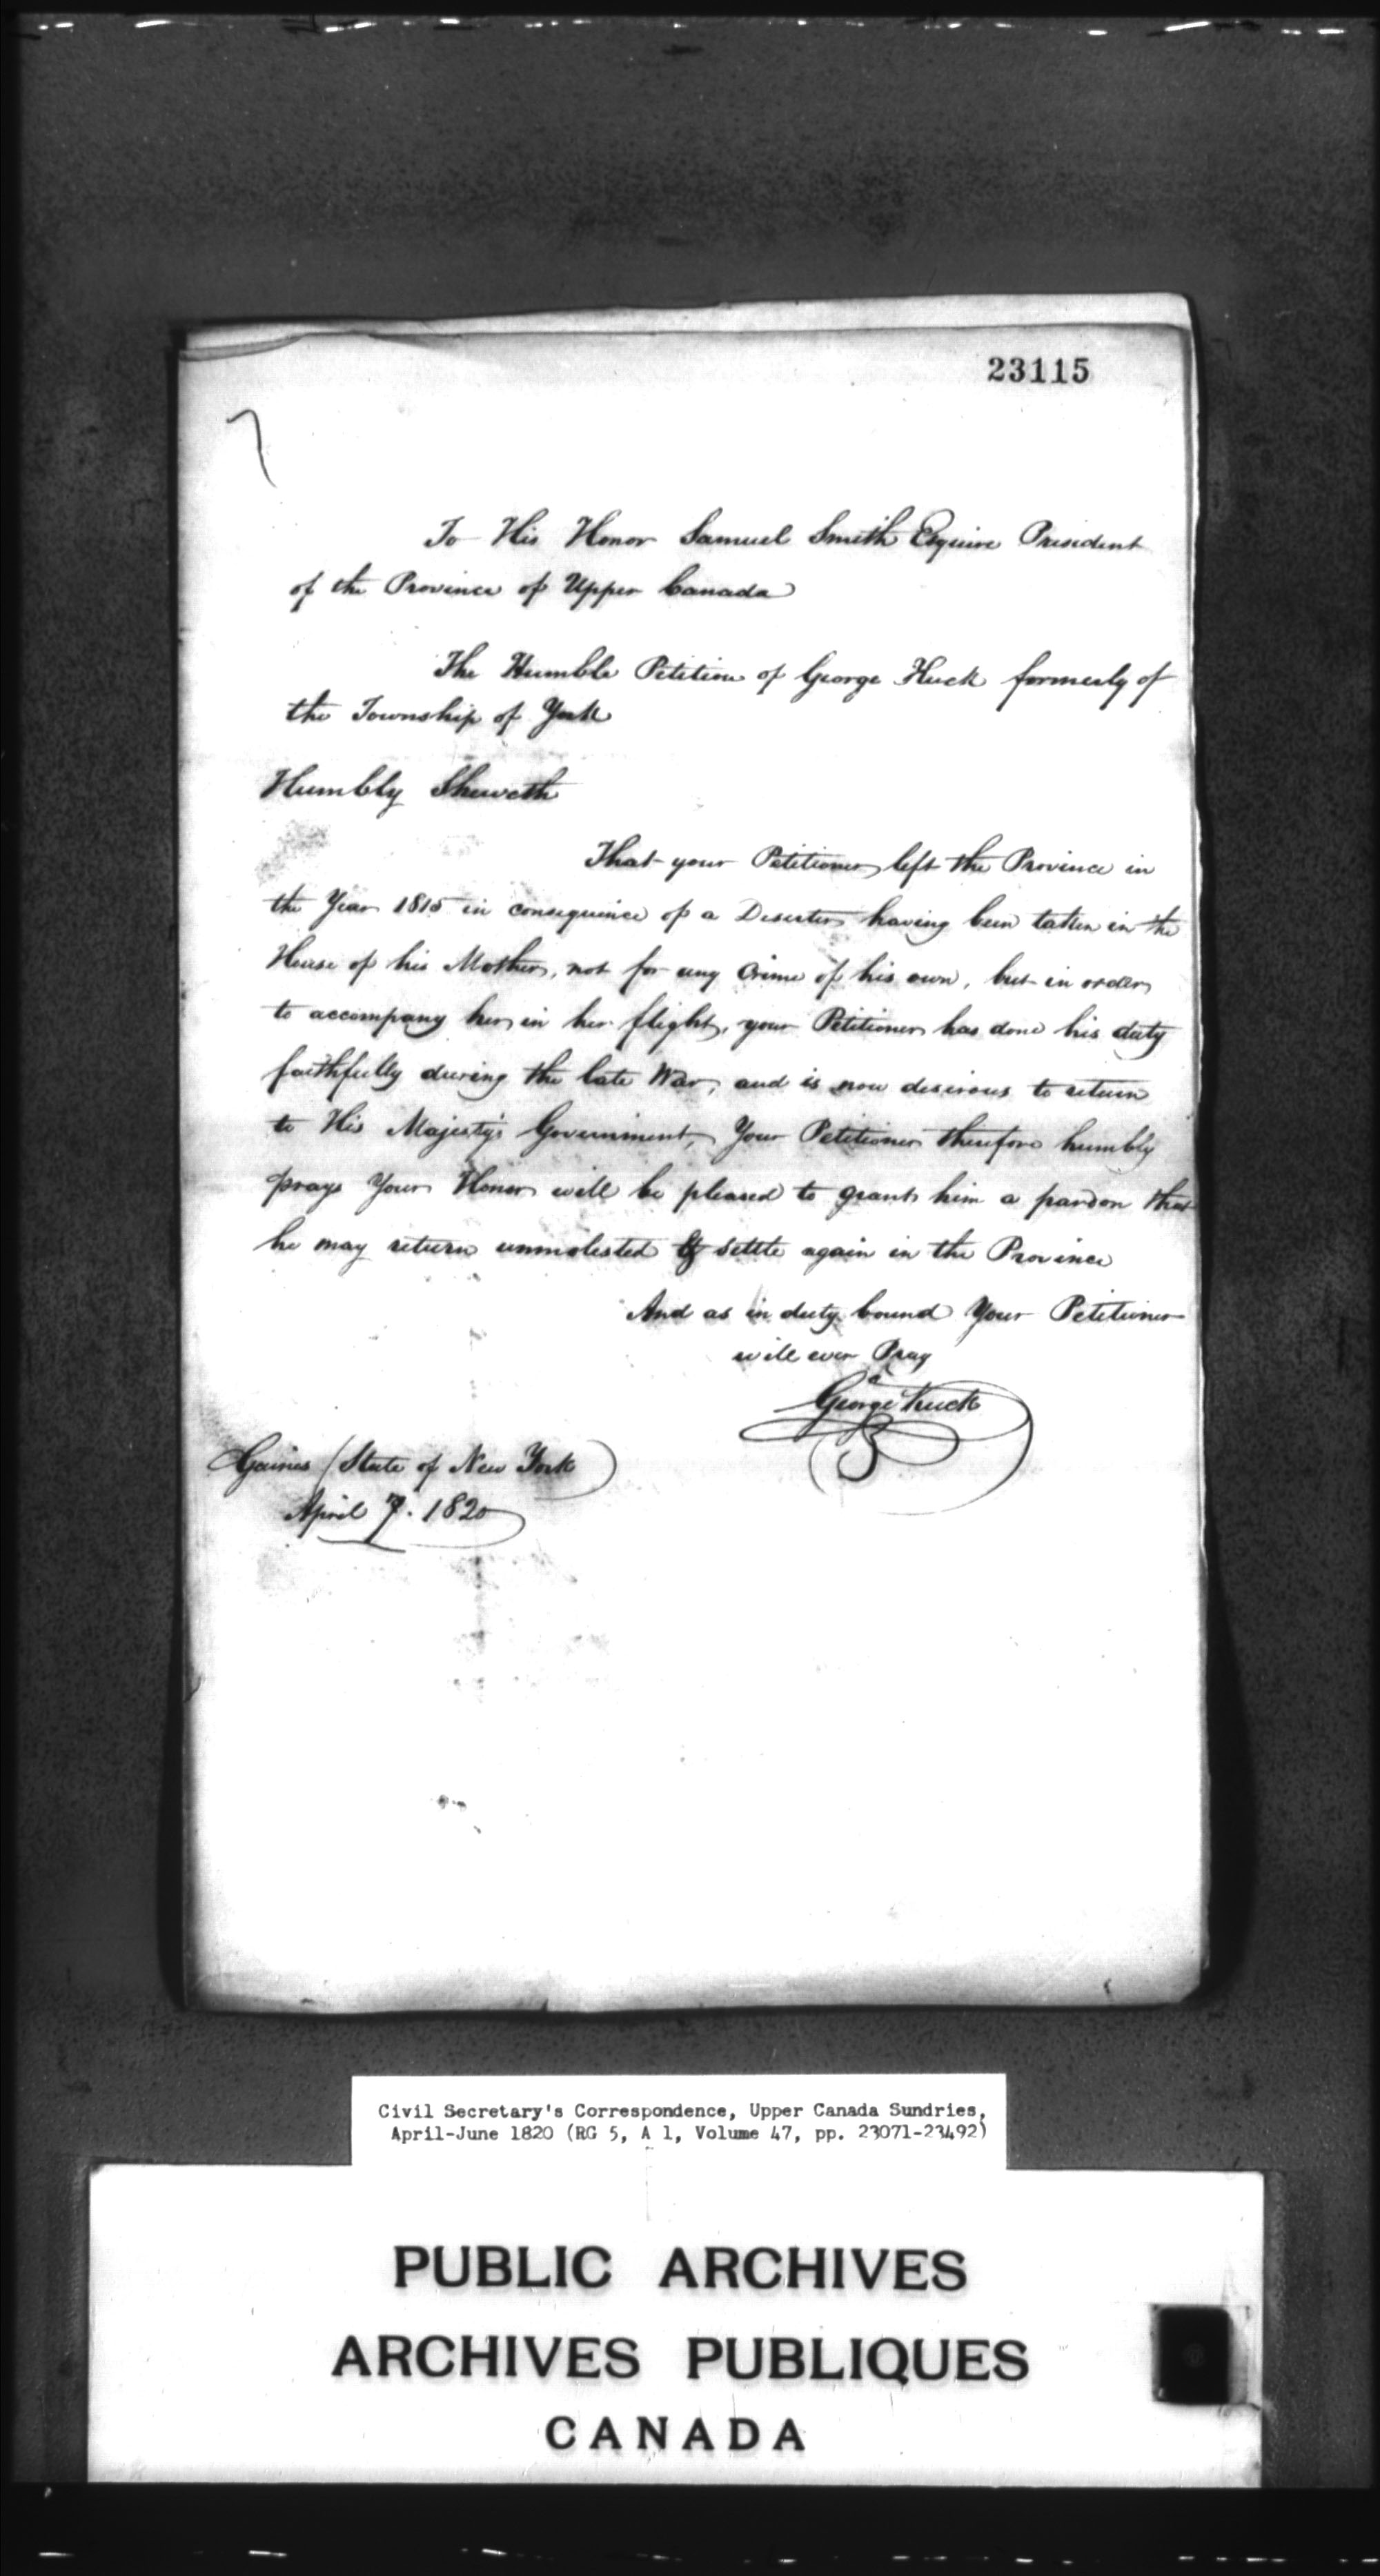 23115
7
To His Honor Samuel Smith Esquire President
of the Province of Upper Canada
The Humble Petition of George Huck formerly of
the Township of York
Humbly Sheweth
That your Petitioner left the Province in
the Year 1815 in consequence of a Deserter having been taken in the
House of his Mother, not for any Crime of his own, but in order
to accompany her in her flight, your Petitioner has done his duty
faithfully during the late War, and is now desirous to return
to His Majesty's Government, Your Petitioner therefore humbly
prays Your Honor will be pleased to grant him a pardon that
he may return unmolested & settle again in the Province
And as in duty bound Your Petitioner
will ever Pray
George Huck
Gaines (State of New York)
April 7. 1820
Civil Secretary's Correspondence, Upper Canada Sundries,
April-June 1820 (RG 5, A 1, Volume 47, pp. 23071-23492)
PUBLIC ARCHIVES
ARCHIVES PUBLIQUES
CANADA